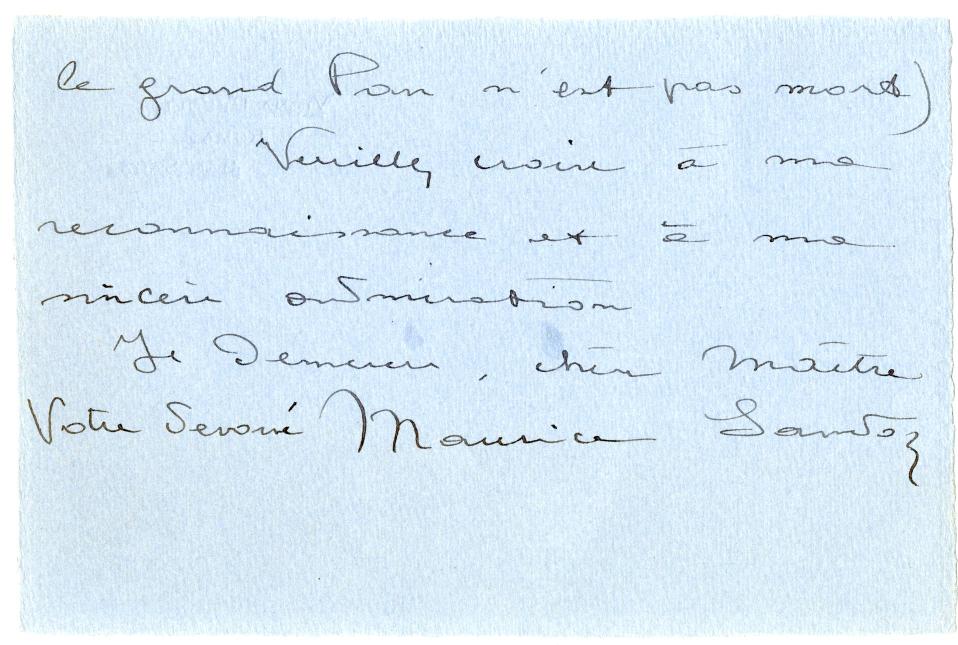 le grand Pan n'est pas mort)
Veuillez croire à ma
reconnaissance et à ma
sincère admiration
Je demeure, cher Maître
Votre dévoué Maurice Sandoz